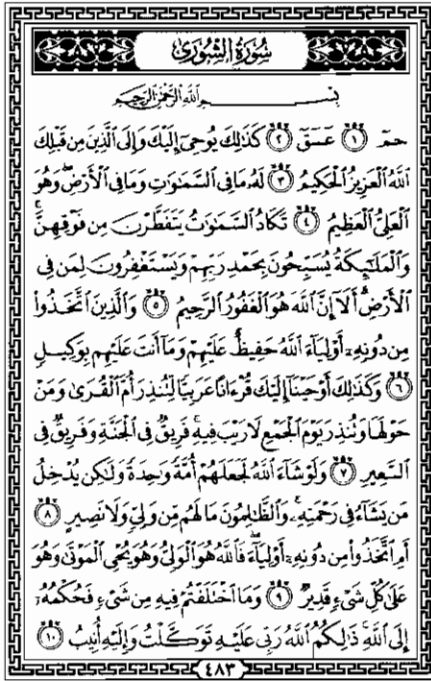 سُورَةُ الشُّورَىٰ
بِسْمِ اللَّهِ الرَّحْمَٰنِ الرَّحِيمِ
حمٓ ۝١ عٓسٓقٓ ۝٢ كَذَٰلِكَ يُوحِىٓ إِلَيْكَ وَإِلَى ٱلَّذِينَ مِن قَبْلِكَ
ٱللَّهُ ٱلْعَزِيزُ ٱلْحَكِيمُ ۝٣ لَهُۥ مَا فِى ٱلسَّمَٰوَٰتِ وَمَا فِى ٱلْأَرْضِ ۖ وَهُوَ
ٱلْعَلِىُّ ٱلْعَظِيمُ ۝٤ تَكَادُ ٱلسَّمَٰوَٰتُ يَتَفَطَّرْنَ مِن فَوْقِهِنَّ ۚ
وَٱلْمَلَٰٓئِكَةُ يُسَبِّحُونَ بِحَمْدِ رَبِّهِمْ وَيَسْتَغْفِرُونَ لِمَن فِى
ٱلْأَرْضِ ۗ أَلَآ إِنَّ ٱللَّهَ هُوَ ٱلْغَفُورُ ٱلرَّحِيمُ ۝٥ وَٱلَّذِينَ ٱتَّخَذُوا۟
مِن دُونِهِۦٓ أَوْلِيَآءَ ٱللَّهُ حَفِيظٌ عَلَيْهِمْ وَمَآ أَنتَ عَلَيْهِم بِوَكِيلٍ
۝٦ وَكَذَٰلِكَ أَوْحَيْنَآ إِلَيْكَ قُرْءَانًا عَرَبِيًّا لِّتُنذِرَ أُمَّ ٱلْقُرَىٰ وَمَنْ
حَوْلَهَا وَتُنذِرَ يَوْمَ ٱلْجَمْعِ لَا رَيْبَ فِيهِ ۚ فَرِيقٌ فِى ٱلْجَنَّةِ وَفَرِيقٌ فِى
ٱلسَّعِيرِ ۝٧ وَلَوْ شَآءَ ٱللَّهُ لَجَعَلَهُمْ أُمَّةً وَٰحِدَةً وَلَٰكِن يُدْخِلُ
مَن يَشَآءُ فِى رَحْمَتِهِۦ ۚ وَٱلظَّٰلِمُونَ مَا لَهُم مِّن وَلِىٍّ وَلَا نَصِيرٍ ۝٨
أَمِ ٱتَّخَذُوا۟ مِن دُونِهِۦٓ أَوْلِيَآءَ ۖ فَٱللَّهُ هُوَ ٱلْوَلِىُّ وَهُوَ يُحْىِ ٱلْمَوْتَىٰ وَهُوَ
عَلَىٰ كُلِّ شَىْءٍ قَدِيرٌ ۝٩ وَمَا ٱخْتَلَفْتُمْ فِيهِ مِن شَىْءٍ فَحُكْمُهُۥٓ
إِلَى ٱللَّهِ ۚ ذَٰلِكُمُ ٱللَّهُ رَبِّى عَلَيْهِ تَوَكَّلْتُ وَإِلَيْهِ أُنِيبُ ۝١٠
٤٨٣